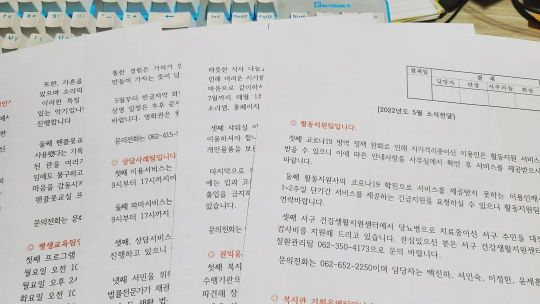 또한, 가온을
있으며 소리의
이러한 특징
있는 악기입니
진행합니다
둘째 팬플룻교
사용했다는 기록
된 관을 여러개
에도 불구하고
마음을 감동시키
팬플룻교실 프
문의전화는
◎ 평생교육팀입
첫째 프로그램
월요일 오전 10
화요일 오후 2시
통한 경험은 가치가
만들어 가자는 뜻이
5월부터 한글자막 화
상영 일정은 추후 공지
바랍니다. 영화관은
문의전화는 062-415-
◎ 상담사례팀입니다.
첫째 이용서비스는
9시부터 17시까지이
둘째 파마서비스는
9시부터 17시까지
셋째, 상담서비스
진행하고 있으니
넷째 서민을 위한
법률전문가가 재판
따뜻한 식사 나눔
인해 여러운 시기를
마음으로 같이하자
7월까지 매월
소리샘, 홈페이지
셋째 샤워실 이
이용하셔야 합니
개인용품을 보관
마지막으로
에는 입과 코
출입을 금지
바랍니다
문의전화는
◎ 권익옹
첫째 복지
수행기관으
파견해 장
결재일
결 재
담당자
관장
사무처장
회장
[2022년도 5월 소식전달]
◎ 활동지원팀입니다.
첫째 코로나19 방역 정책 완화로 인해 자가격리중이신 이용인은 활동지원 서비스
받을 수 있으니 이에 따른 안내사항을 사무실에서 확인 후 서비스를 제공받으시
바랍니다.
둘째 활동지원사의 코로나19 확진으로 서비스를 제공받지 못하는 이용인께서
1~2주일 단기간 서비스를 제공하는 긴급지원을 요청하실 수 있으니 활동지원팀
연락바랍니다.
셋째 서구 건강생활지원센터에서 당뇨병으로 치료중이신 서구 주민을 대상
검사비를 지원해 드리고 있습니다. 관심있으신 분은 서구 건강생활지원센터
질환관리팀 062-350-4173으로 문의 바랍니다.
문의전화는 062-652-2250이며 담당자는 백진하, 서인숙, 이정헌, 윤세훈
◎ 복지관 기획운영팀입니다